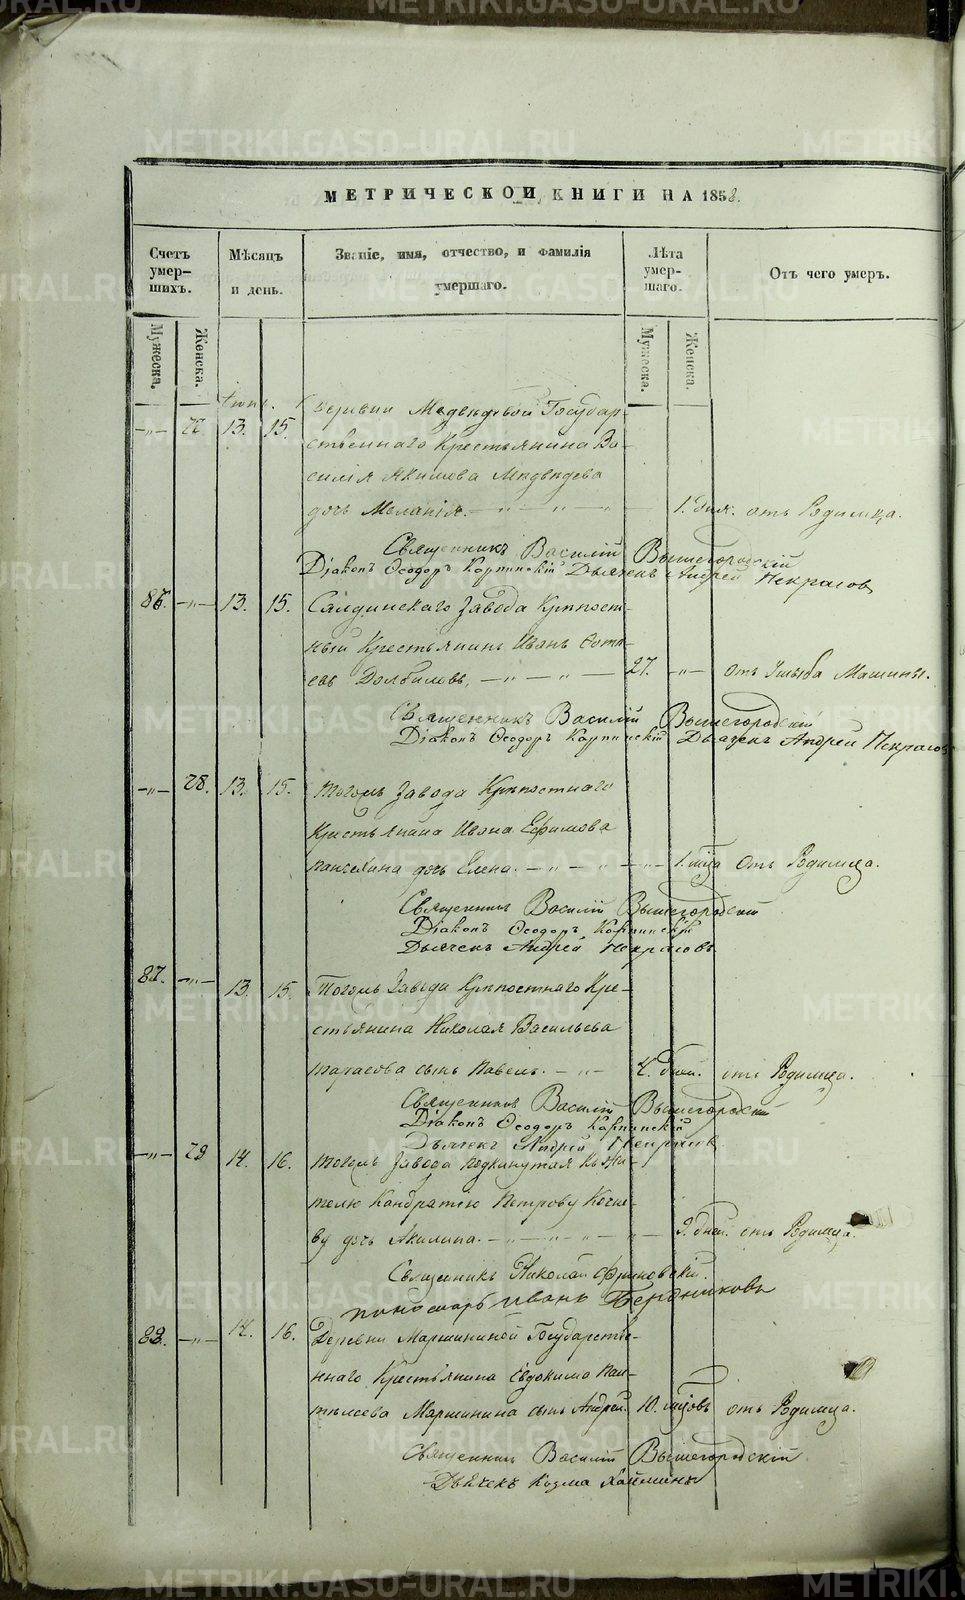 МЕТРИЧЕСКОЙ КНИГИ НА 1858.
Счетъ умер-шихъ.
Мѣсяцъ и день.
Званіе, имя, отчество, и фамилія умершаго.
Лѣта умер-шаго.
Отъ чего умеръ.
Мужеска.
Женска.
Мужеска.
Женска.
Деревни Медвѣдевой Государ-
—"— 13. 15. ственнаго Крестьянина Ва-
силія Якимова Медвѣдева
дочь Меланія. — " — " — " — 1. отъ Родимца.
Священникъ Василій Вышегородскій
Діаконъ Ѳеодоръ Карпинскій Дьячекъ Андрей Некрасов
86. —"— 13. 15. Салдинскаго Завода Крѣпост-
ный Крестьянинъ Иванъ
Долбиловъ, — " — " — 27. —"— отъ Ушыба Машины.
Священникъ Василій Вышегородскій
Діаконъ Ѳеодоръ Карпинскій Дьячекъ Андрей Некрасов
—"— 28. 13. 15. Тогожъ Завода Крѣпостнаго
Крестьянина Ивана Ефимова
дочь Елена. — " — " — " — 1. отъ Родимца.
Священникъ Василій Вышегородскій
Діаконъ Ѳеодоръ Карпинскій
Дьячекъ Андрей Некрасовъ
87. —"— 13. 15. Тогожъ Завода Крѣпостнаго Кре-
стьянина Николая Васильева
Тарасова сынъ Павелъ. — " — 4. дней. отъ Родимца.
Священникъ Василій Вышегородскій
Діаконъ Ѳеодоръ Карпинскій
Дьячекъ Андрей Некрасов
—"— 29 14. 16. Тогожъ Завода подкинутая къ жи-
телю Кандратію Петрову
ву дочь Акилина. — " — " — " — 9. дней. отъ Родимца.
Священникъ Николай
пономарь Иванъ Бердниковъ
88. —"— 14. 16. Деревни Маршининой Государстве-
ннаго Крестьянина Евдокима Пан-
телеева Маршинина сынъ Андрей. 10. мцовъ отъ Родимца.
Священникъ Василій Вышегородскій
Дьячекъ Козма
METRIKI.GASO-URAL.RU